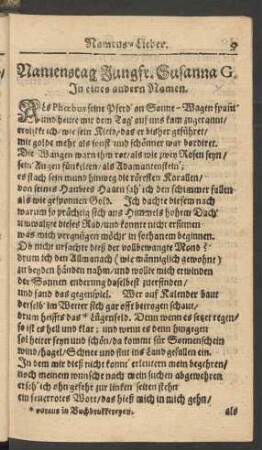 Namens-Lieder. 9
Namenstag Jungfr. Susanna G.
In eines andern Namen.
ALs Phœbus seine Pferd' an Sonne-Wagen spant'
und heute mit dem Tag' auf uns kam zugerannt,
erblikkt' ich, wie sein Kleid, das er bisher geführet,
mit golde mehr als sonst und schöner war bordiret.
Die Wangen warn ihm rot, als wie zwey Rosen seyn,
sein' Augen fünkelten, als Adamantenstein,
es stach sein mund hinweg die röresten Korallen,
von seines Hauptes Haarn sah' ich den schimmer fallen
als wie gesponnen Gold. Ich dachte diesem nach
warum so prächtig sich ans Himmels hohem Dach'
umwälzte dieses Rad, und konnte nicht ersinnen
was mich vergnügen möcht' in sothanem beginnen.
Ob nicht ursachte dieß der vollbewangte Mond?
drum ich den Allmanach (wie männiglich gewohnt)
zu beyden händen nahm, und wollte mich erwinden
der Sonnen enderung daselbest zuerfinden,
und fand das gegenspiel. Wer auf Kalender baut
derselb' im Wetter sich gar offt betrogen schaut,
drum heissts das * Lügenfeld. Denn wenn es setzet regen,
so ist es hell und klar; und wenn es denn hingegen
sol heiter seyn und schön, da kommt für Sonnenschein
wind, hagel, Schnee und eiß ins Land gefallen ein.
In dem mir dieß nicht konnt' erleutern mein begehren,
noch meinem wunsche nach mein suchen abgewehren
erseh' ich ohn gefehr zur linken seiten steher
ein feuerrotes Wort, das hieß mich in mich gehn,
* voraus in Buchdrukkereyen. als